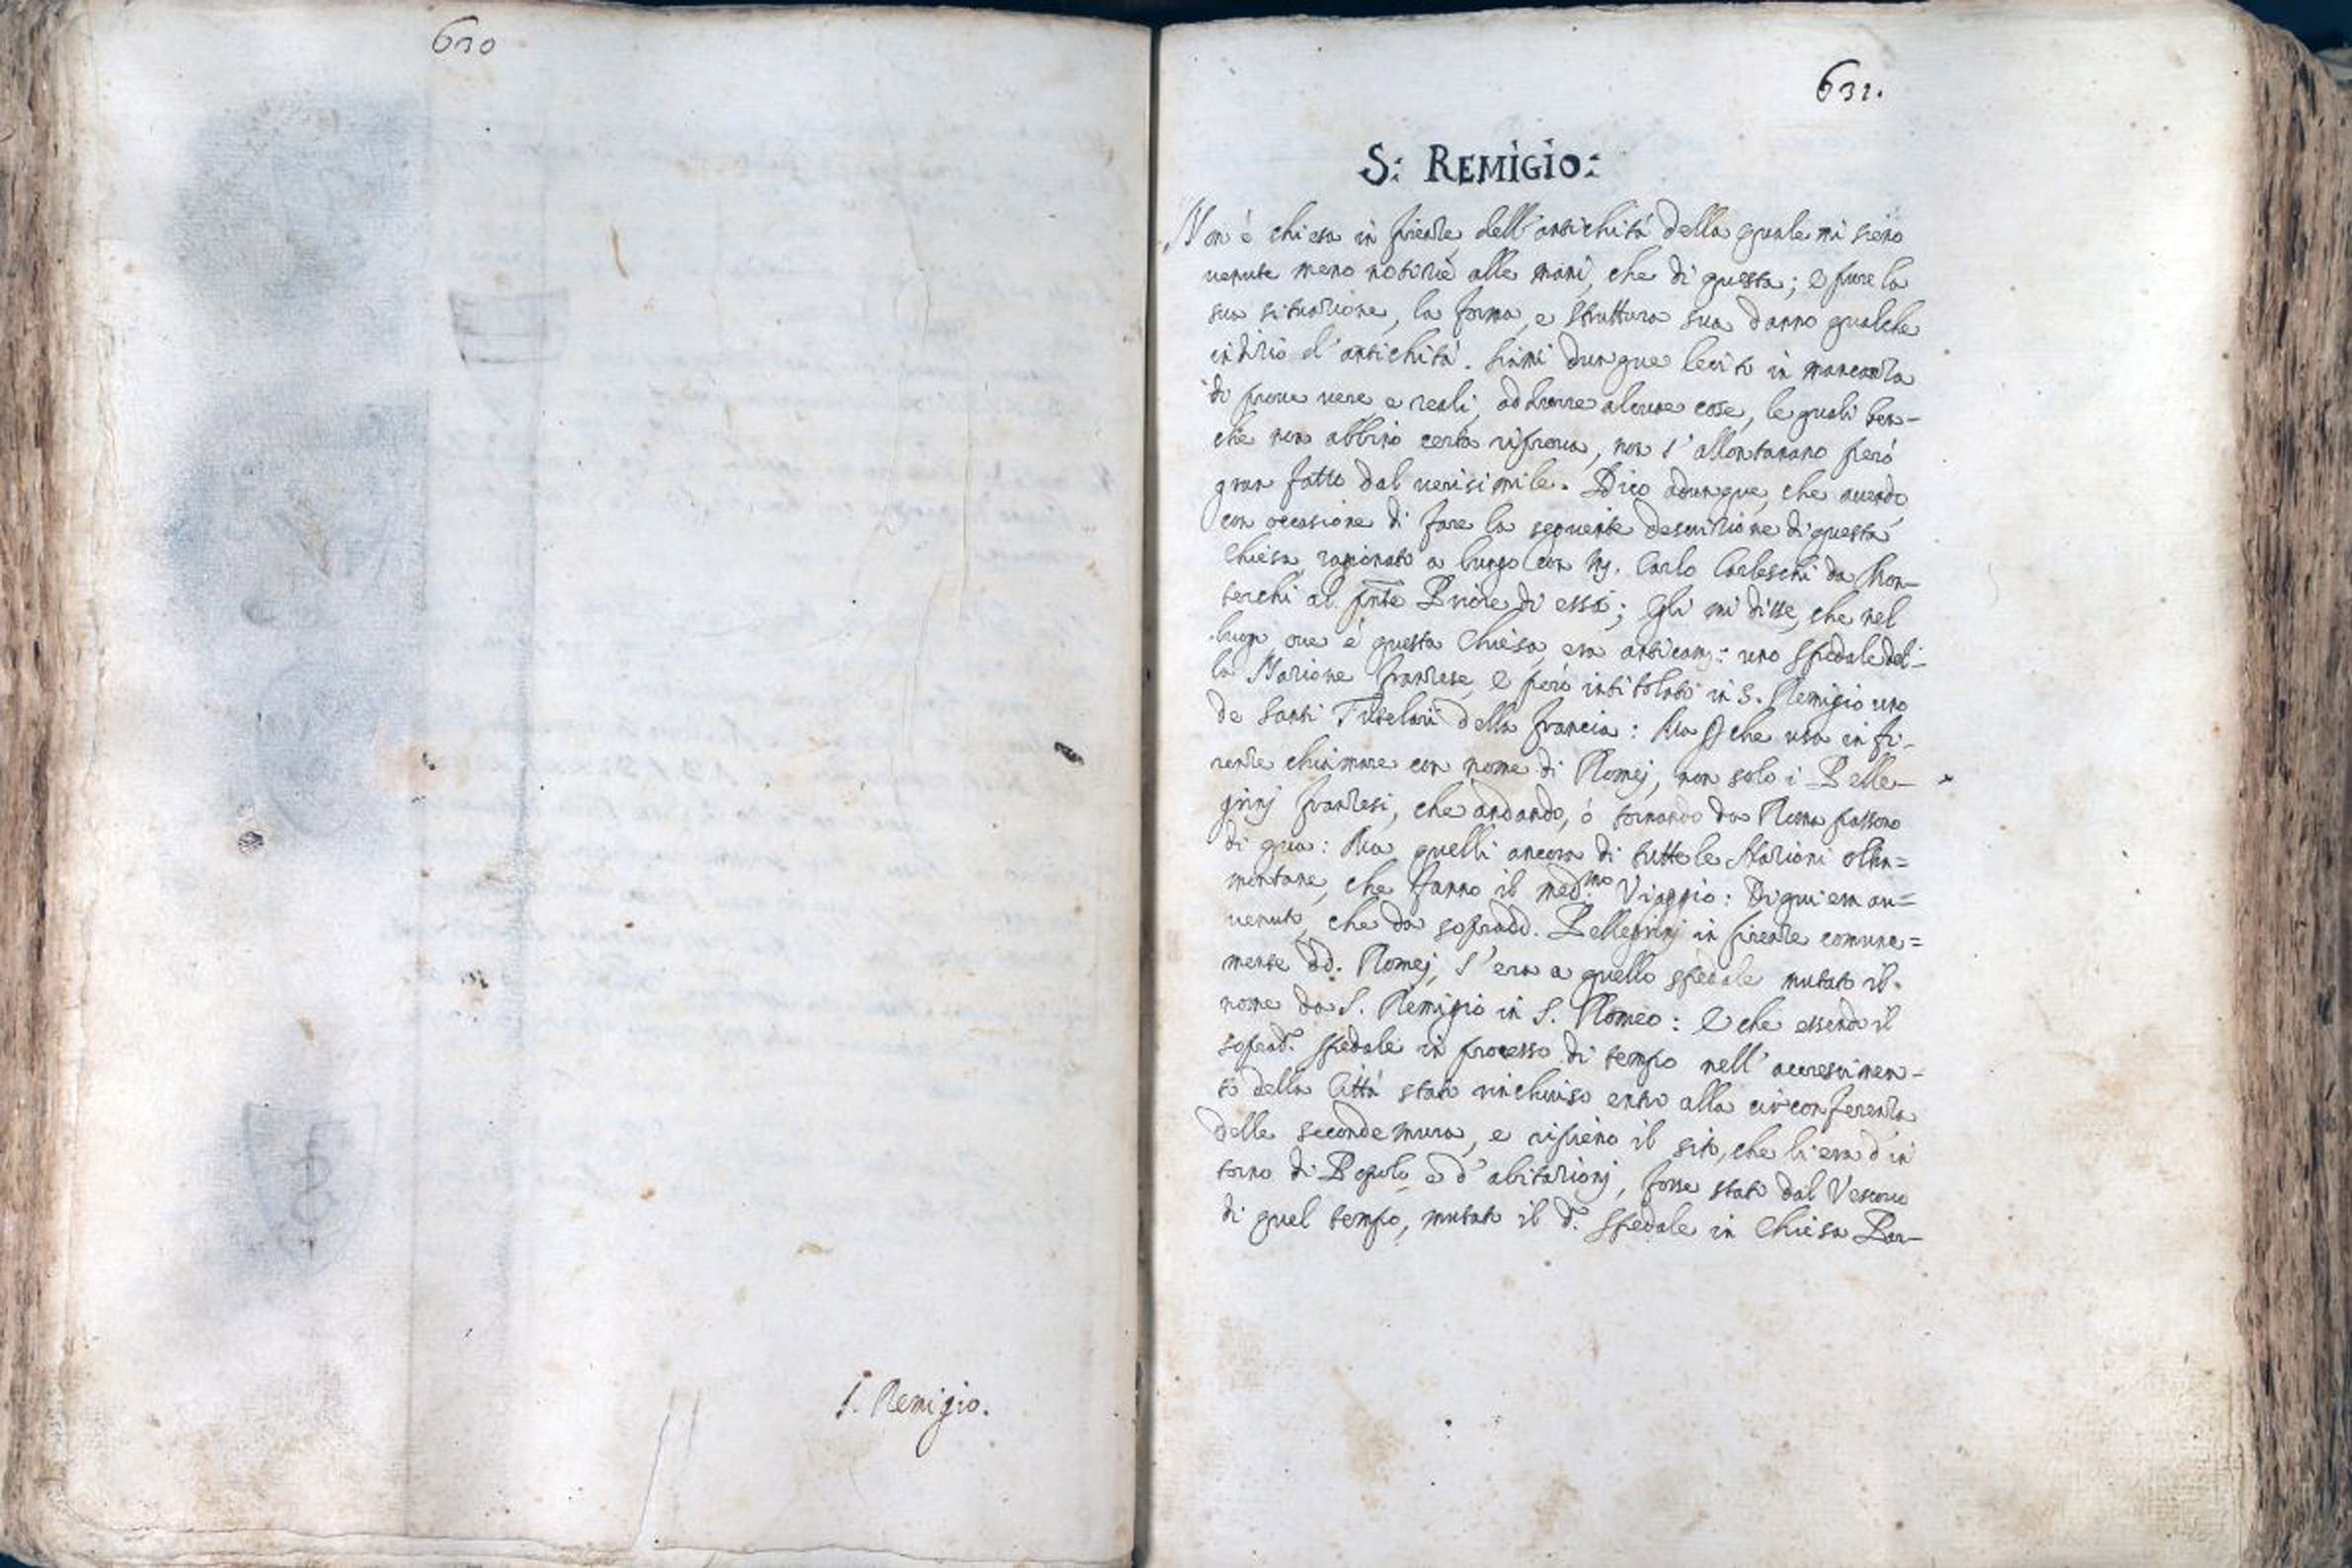 630
S. Remigio.
631.
S: REMIGIO:
Non è chiesa in firenze dell'antichità della quale mi sieno
venute meno notizie alle mani, che di questa; e pure la
sua situazione, la forma, e struttura sua danno qualche
indizio d'antichità. Siami dunque lecito in mancanza
di prove vere e reali, addurre alcune cose, le quali ben-
che non abbino certa riprova, non s'allontanano però
gran fatto dal verisimile. Dico adunque, che avendo
con occasione di fare la seguente descrizione di questa
Chiesa ragionato a lungo con Carlo Carleschi da Mon-
terchi al pnte Priore di essa; Egli mi disse, che nel
luogo ove è questa Chiesa era anticam: uno spedale del-
la Nazione franzese, e però intitolato in S. Remigio uno
de Santi Tutelari della francia: Ma che usa in fi-
renze chiamare con nome di Romej, non solo i Belle-
grinj franzesi, che andando, ò tornando da Roma passono
di qua: Ma quelli ancora di tutte le Nazioni oltra=
montane, che fanno il med.mo Viaggio: Di qui era av=
venuto, che da sopradd. Pellegrinj in firenze comune=
mente dd. Romej, s'era a quello spedale mutato il
nome da S. Remigio in S. Romeo: E che essendo il
soprad. spedale in processo di tempo nell'accrescimen-
to della Città stato rinchiuso entro alla circonferenza
delle seconde mura, e ripieno il sito, che li era d'in
torno di Popolo e d'abitazionj, fosse stato dal Vescovo
di quel tempo, mutato il d. spedale in Chiesa Par-